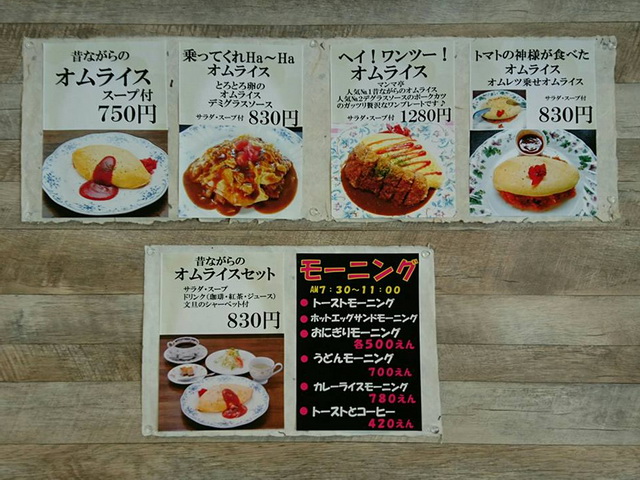 昔ながらの
オムライス
スープ付
750円
乗ってくれHa～Ha
オムライス
とろとろ卵の
オムライス
デミグラスソース
サラダ・スープ付 830円
ヘイ！ワンツー！
オムライス
マンマ亭
人気№1昔ながらのオムライス
人気№2デグラスソースのポークカツ
のガッツリ贅沢なワンプレートです♪
サラダ・スープ付 1280円
トマトの神様が食べた
オムライス
オムレツ乗せオムライス
サラダ・スープ付
830円
昔ながらの
オムライスセット
サラダ・スープ
ドリンク(珈琲・紅茶・ジュース)
文旦のシャーベット付
830円
モーニング
AM7:30～11:00
●トーストモーニング
●ホットエッグサンドモーニング
●おにぎりモーニング
各500えん
●うどんモーニング
700えん
●カレーライスモーニング
780えん
●トーストとコーヒー
420えん